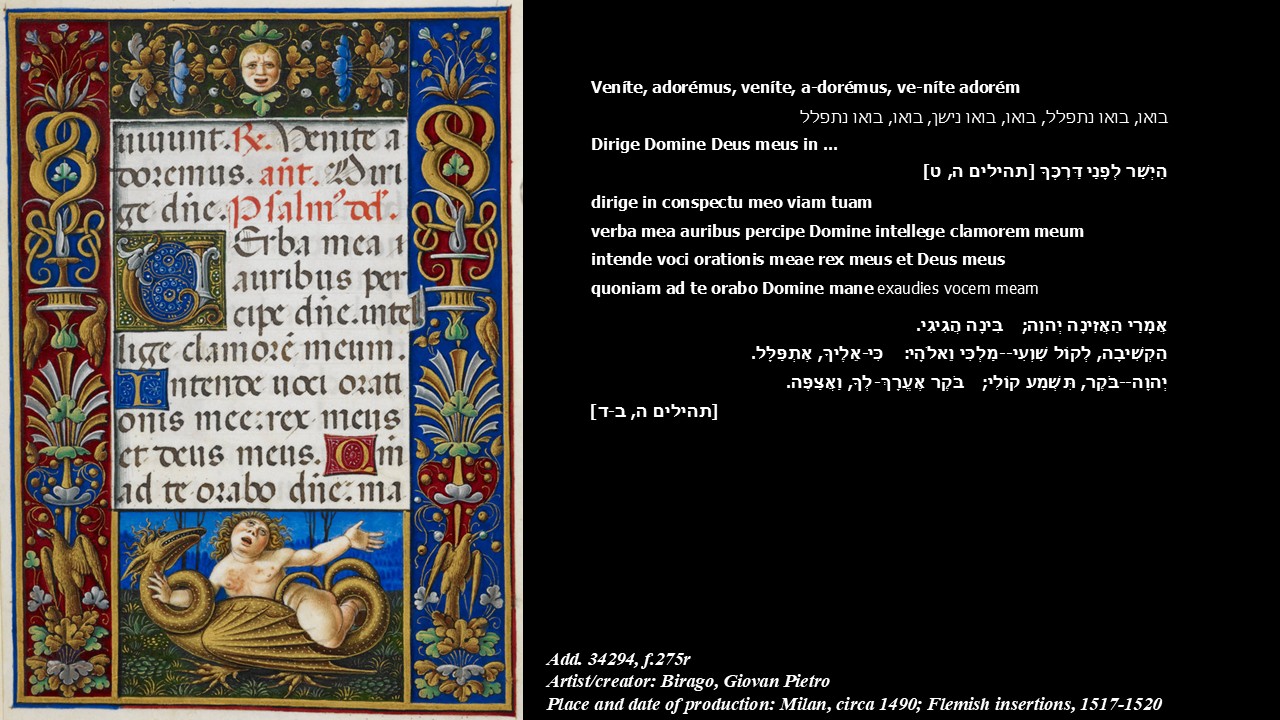 uiuunt. R. Venite a
doremus. añt. Diri
ge dñe. Psalm⁹ dd̃.
Erba mea a
auribus per
cipe dñe. intel
lige clamorẽ meum.
Intende uoci orati
onis mee: rex meus
et deus meus. Qm̃
ad te orabo dñe: ma
Veníte, adorémus, veníte, a-dorémus, ve-níte adorém
בואו, בואו נתפלל, בואו, בואו נישן, בואו, בואו נתפלל
Dirige Domine Deus meus in ...
הַיְשַׁר לְפָנַי דַּרְכֶּךָ [תהילים ה, ט]
dirige in conspectu meo viam tuam
verba mea auribus percipe Domine intellege clamorem meum
intende voci orationis meae rex meus et Deus meus
quoniam ad te orabo Domine mane exaudies vocem meam
אֲמָרַי הַאֲזִינָה יְהוָה; בִּינָה הֲגִיגִי.
הַקְשִׁיבָה, לְקוֹל שַׁוְעִי--מַלְכִּי וֵאלֹהָי: כִּי-אֵלֶיךָ, אֶתְפַּלָּל.
יְהוָה--בֹּקֶר, תִּשְׁמַע קוֹלִי; בֹּקֶר אֶעֱרָךְ-לְךָ, וַאֲצַפֶּה.
[תהילים ה, ב-ד]
Add. 34294, f.275r
Artist/creator: Birago, Giovan Pietro
Place and date of production: Milan, circa 1490; Flemish insertions, 1517-1520